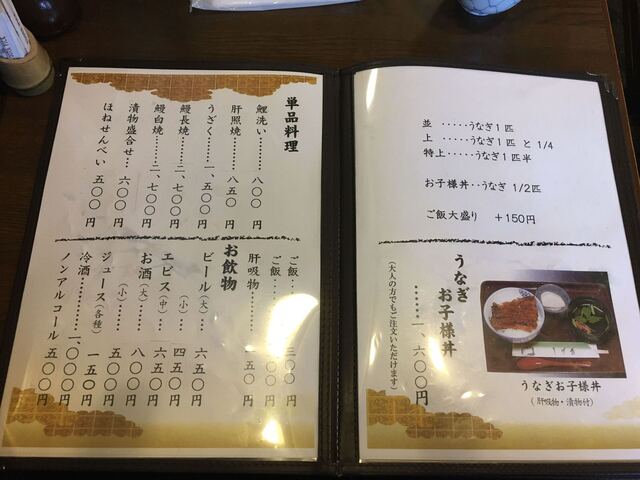 単品料理
鯉洗い………八〇〇円
肝照焼………八五〇円
うざく………一、五〇〇円
鰻長焼………二、七〇〇円
鰻白焼………二、七〇〇円
漬物盛合せ…六〇〇円
ほねせんべい 五〇〇円
ご飯…………三〇〇円
ご飯
肝吸物………一五〇円
お飲物
ビール(大)…六五〇円
(小)…四五〇円
エビス(中)…六五〇円
お酒(大)……八〇〇円
(小)……五〇〇円
ジュース(各種) 一五〇円
冷酒…………一、〇〇〇円
ノンアルコール 五〇〇円
並 ‥‥‥うなぎ1匹
上 ‥‥‥うなぎ1匹 と 1/4
特上‥‥‥うなぎ1匹半
お子様丼‥うなぎ 1/2匹
ご飯大盛り ＋150円
うなぎ
お子様丼
……一、六〇〇円
(大人の方でもご注文いただけます)
うなぎお子様丼
(肝吸物・漬物付)